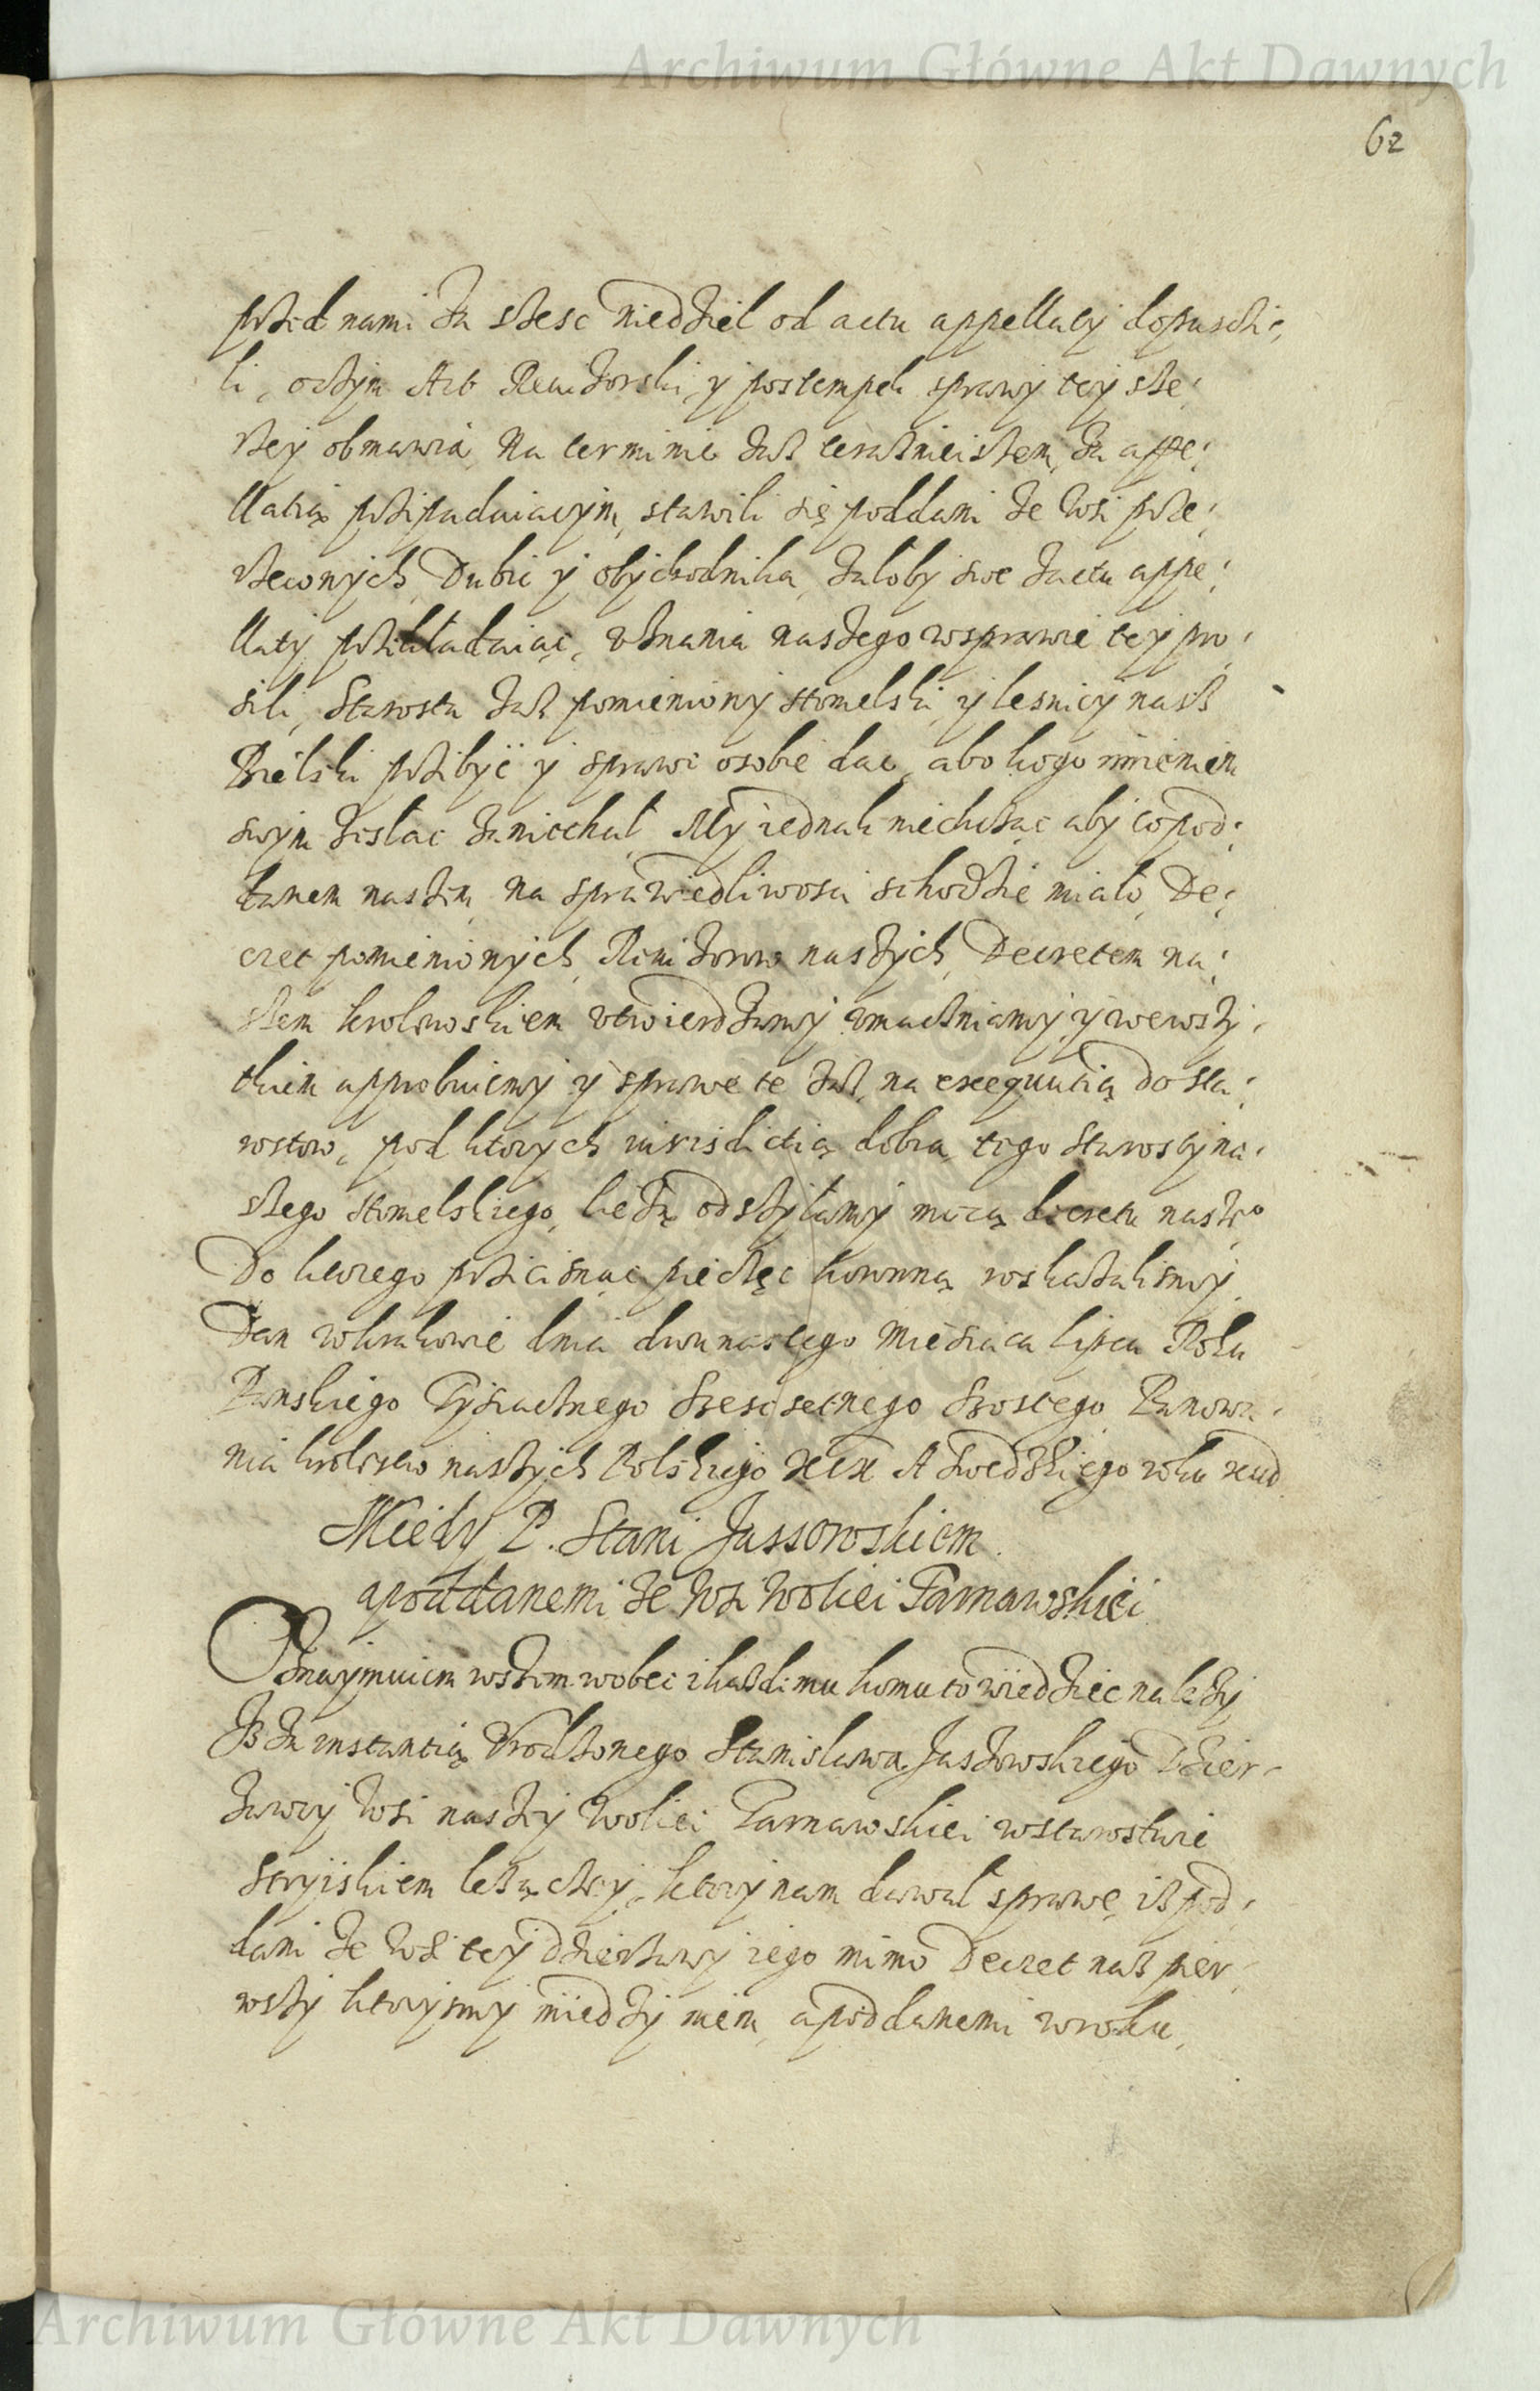 Archiwum Główne Akt Dawnych
62
przed nami za szesc niedziel od actu appellacy dopuscze,
li, oczym Act Rewizorski y postempek sprawy tey sze,
rzey obmawia, Na terminie zas terazniejszem, za appe,
llatią przipadaiącym, stawili się poddani ze wsi prze,
rzeconych Dubic y obychodnika, załoby swe zactu appe,
llaty przekładaiąc, uznania naszego wsprawie tey pro,
sili, Starosta zas pomieniony stomelski, y lesniczy nasz
Bielski przibyć y sprawe osobie dac, abo kogo imieniem
swym zesłac zaniechał. My iednak niechcząc aby co pod,
danem naszem na sprawiedliwosci schodzie miało, De,
cret pomienionych Revizorow naszych, Decretem na,
szem krolewskiem utwierdzamy umaczniamy y wewszy,
tkiem approbuiemy y sprawe te zas, na exequutią do sta,
rostow, pod ktorych iurisdictią dobra, tego Starosty na,
szego stomelskiego, lezą odszyłamy mocą decretu naszeo
Do ktorego prziciznąc pieczęc koronną roskazalismy.
Dan wkrakowie dnia dwunastego Miesiaca lipca Roku
Panskiego Tysiacznego Szescsetnego Szostego Panowa,
nia krolestw naszych Polskiego XIX A Szwedzkiego roku XIII
Miedy P. Stani Jassowskiem
apoddanemi ze wsi Wolicei Tarnawskiei
Oznaymuiem wszem wobec i kazdemu komu to wiedziec nalezy
Iz za instantią Urodzonego Stanisława Jaszowskiego Dzier,
zawcy wsi naszey Wolicei Tarnawskiei wstarostwie
Stryiskiem lezączey, ktory nam dawał sprawę, iz pod,
dani ze wsi tey dzierzawy iego mimo Decret nasz pier,
wszy ktorysmy miedzy niem, apoddanemi wroku,
Archiwum Główne Akt Dawnych